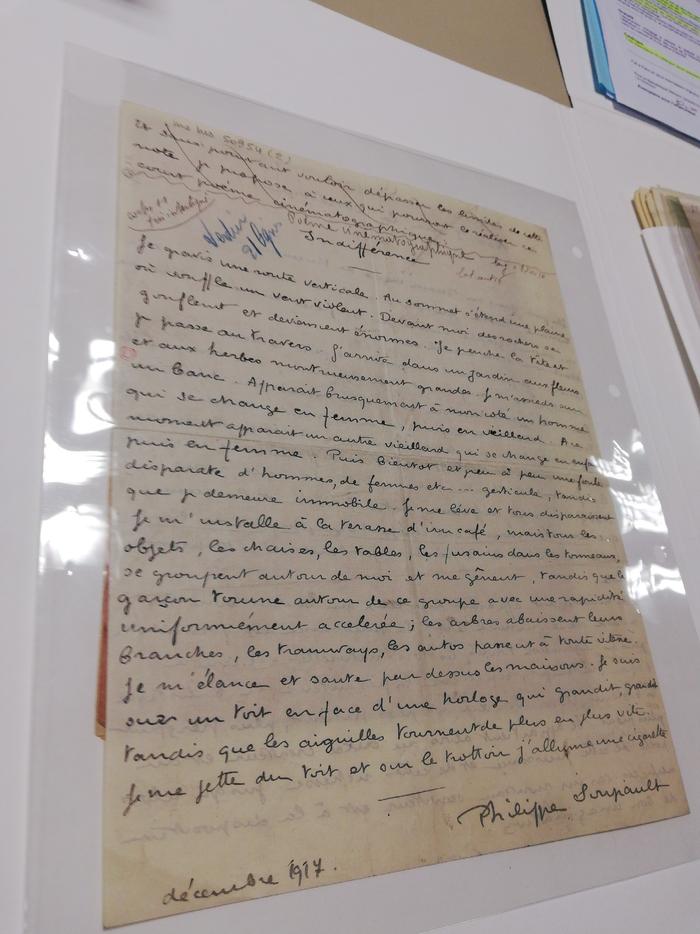 ms ms 50954 (2)
Et sans pourtant vouloir dépasser les limites de cette
note je propose à ceux qui pourront le réaliser ce
court poème cinématographique
Poème cinématographique
Indifférence
Je gravis une route verticale. Au sommet s'étend une plaine
où souffle un vent violent. Devant moi des rochers se
gonflent et deviennent énormes. Je penche la tête et
je passe au travers. J'arrive dans un jardin aux fleurs
et aux herbes monstrueusement grandes. Je m'assieds sur
un banc. Apparaît brusquement à mon côté un homme
qui se change en femme, puis en vieillard. A ce
moment apparait un autre vieillard qui se change en enfant
puis en femme. Puis bientot et peu à peu une foule
disparate d'hommes, de femmes etc... gesticule, tandis
que je demeure immobile. Je me lève et tous disparaissent
Je m'installe à la terasse d'un café, mais tous les
objets, les chaises, les tables, les fusains dans les tonneaux,
se groupent autour de moi et me gênent, tandis que le
garçon tourne autour de ce groupe avec une rapidité
uniformément accelerée; les arbres abaissent leurs
branches, les tramways, les autos passent à toute vitesse.
Je m'élance et saute par dessus les maisons. Je suis
sur un toit en face d'une horloge qui grandit, grandit
tandis que les aiguilles tournent de plus en plus vite.
Je me jette du toit et sur le trottoir j'allume une cigarette
Philippe Soupault
décembre 1917.